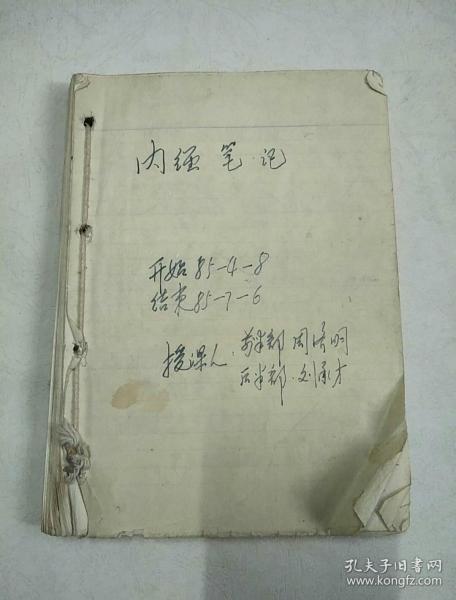 内经笔记
开始 85-4-8
结束 85-7-6
授课人: 前半部 周
后半部·刘承才
孔夫子旧书网
www.kongfz.com